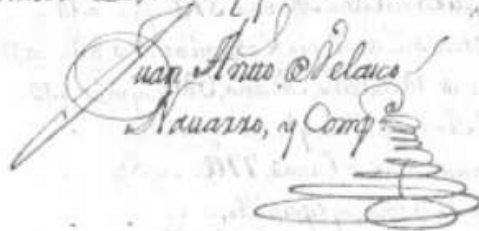 Juan Anto de Velasco
Navarro, y Compª